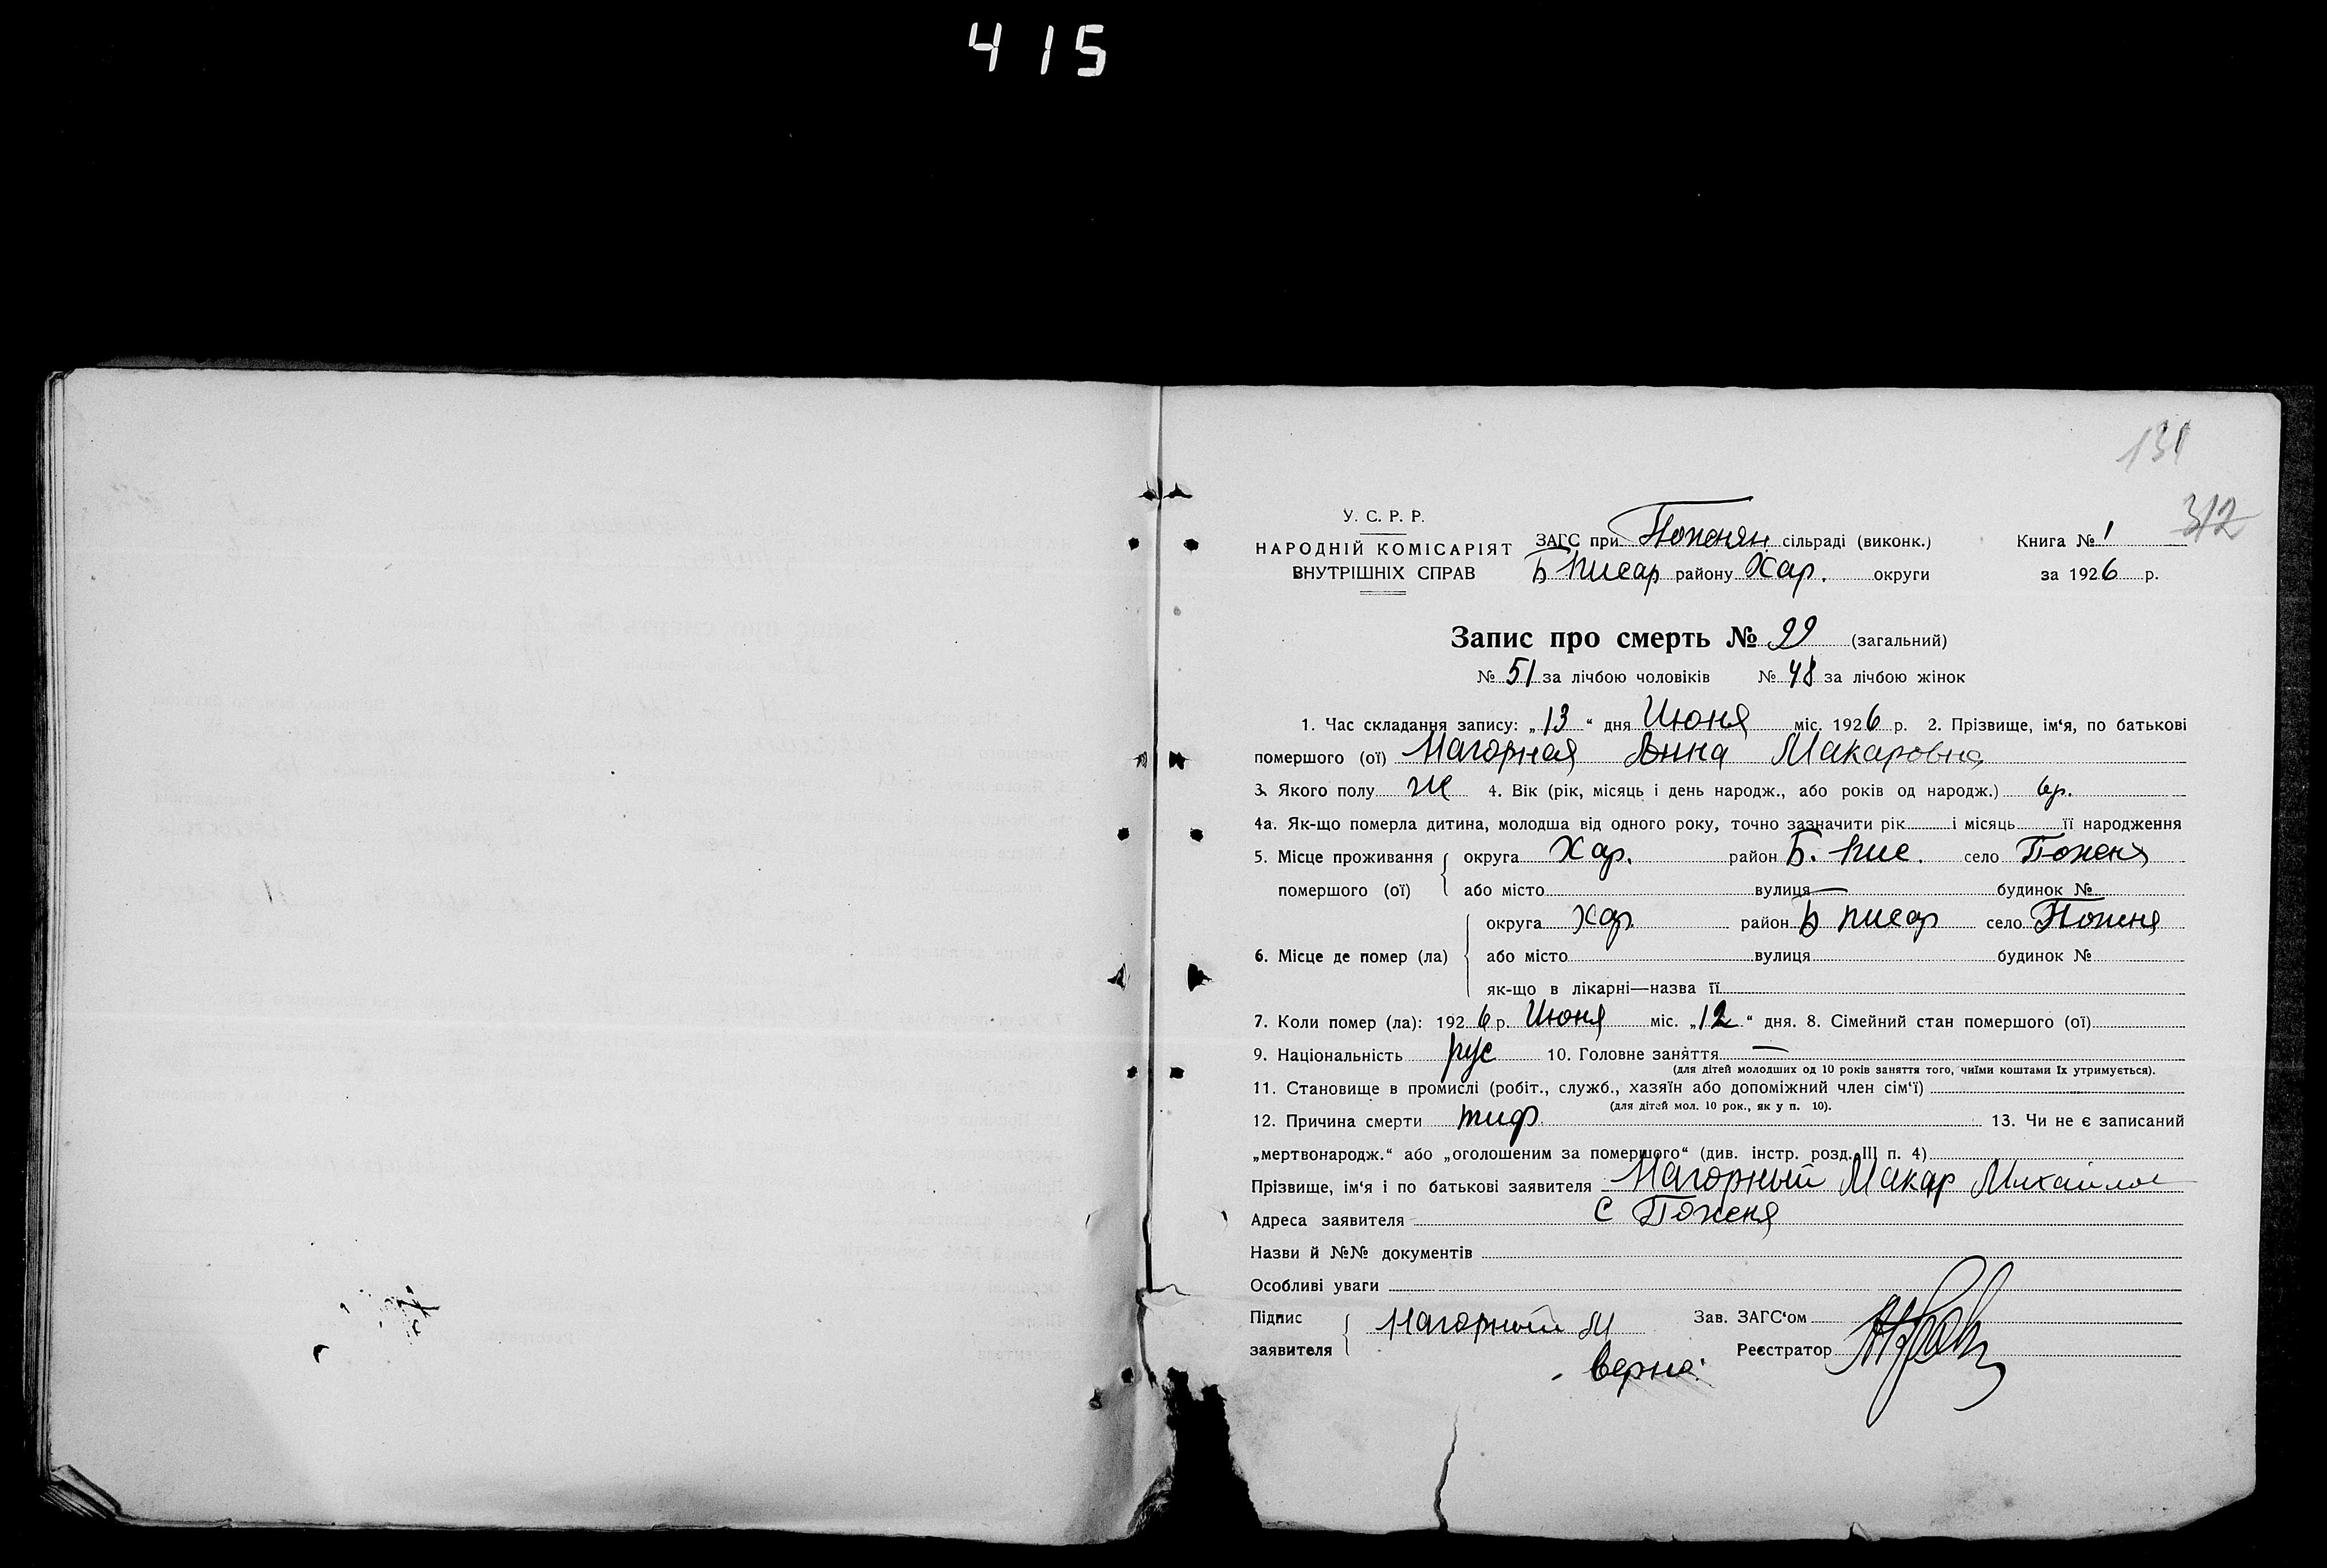 415
131
312
У. С. Р. Р.
НАРОДНІЙ КОМІСАРІЯТ
ВНУТРІШНІХ СПРАВ
ЗАГС при Поженян. сільраді (виконк.)
Б Писар району Хар. округи
Книга № 1
за 1926 р.
Запис про смерть № 99 (загальний)
№ 51 за лічбою чоловіків № 48 за лічбою жінок
1. Час складання запису: „13“ дня Июня міс. 1926 р. 2. Прізвище, ім‘я, по батькові
помершого (ої) Нагорная Анна Макаровна
3. Якого полу ж 4. Вік (рік, місяць і день народж., або років од народж.) 6р.
4а. Як-що померла дитина, молодша від одного року, точно зазначити рік і місяць її народження
5. Місце проживання помершого (ої) округа Хар. район Б. Пис. село Поженя
або місто вулиця — будинок №
6. Місце де помер (ла) округа Хар. район Б Писар село Поженя
або місто вулиця будинок №
як-що в лікарні—назва її
7. Коли помер (ла): 1926 р. Июня міс. „12“ дня. 8. Сімейний стан помершого (ої)
9. Національність рус 10. Головне заняття —
(для дітей молодших од 10 років заняття того, чиїми коштами їх утримується).
11. Становище в промислі (робіт., служб., хазяїн або допоміжний член сім‘ї)
(для дітей мол. 10 рок., як у п. 10).
12. Причина смерти тиф. 13. Чи не є записаний
„мертвонародж.“ або „оголошеним за помершого“ (див. інстр. розд. III п. 4)
Прізвище, ім‘я і по батькові заявителя Нагорный Макар Михайлов
Адреса заявителя с Поженя
Назви й №№ документів
Особливі уваги
Підпис заявителя Нагорный М
Зав. ЗАГС‘ом
Реєстратор
Верно: